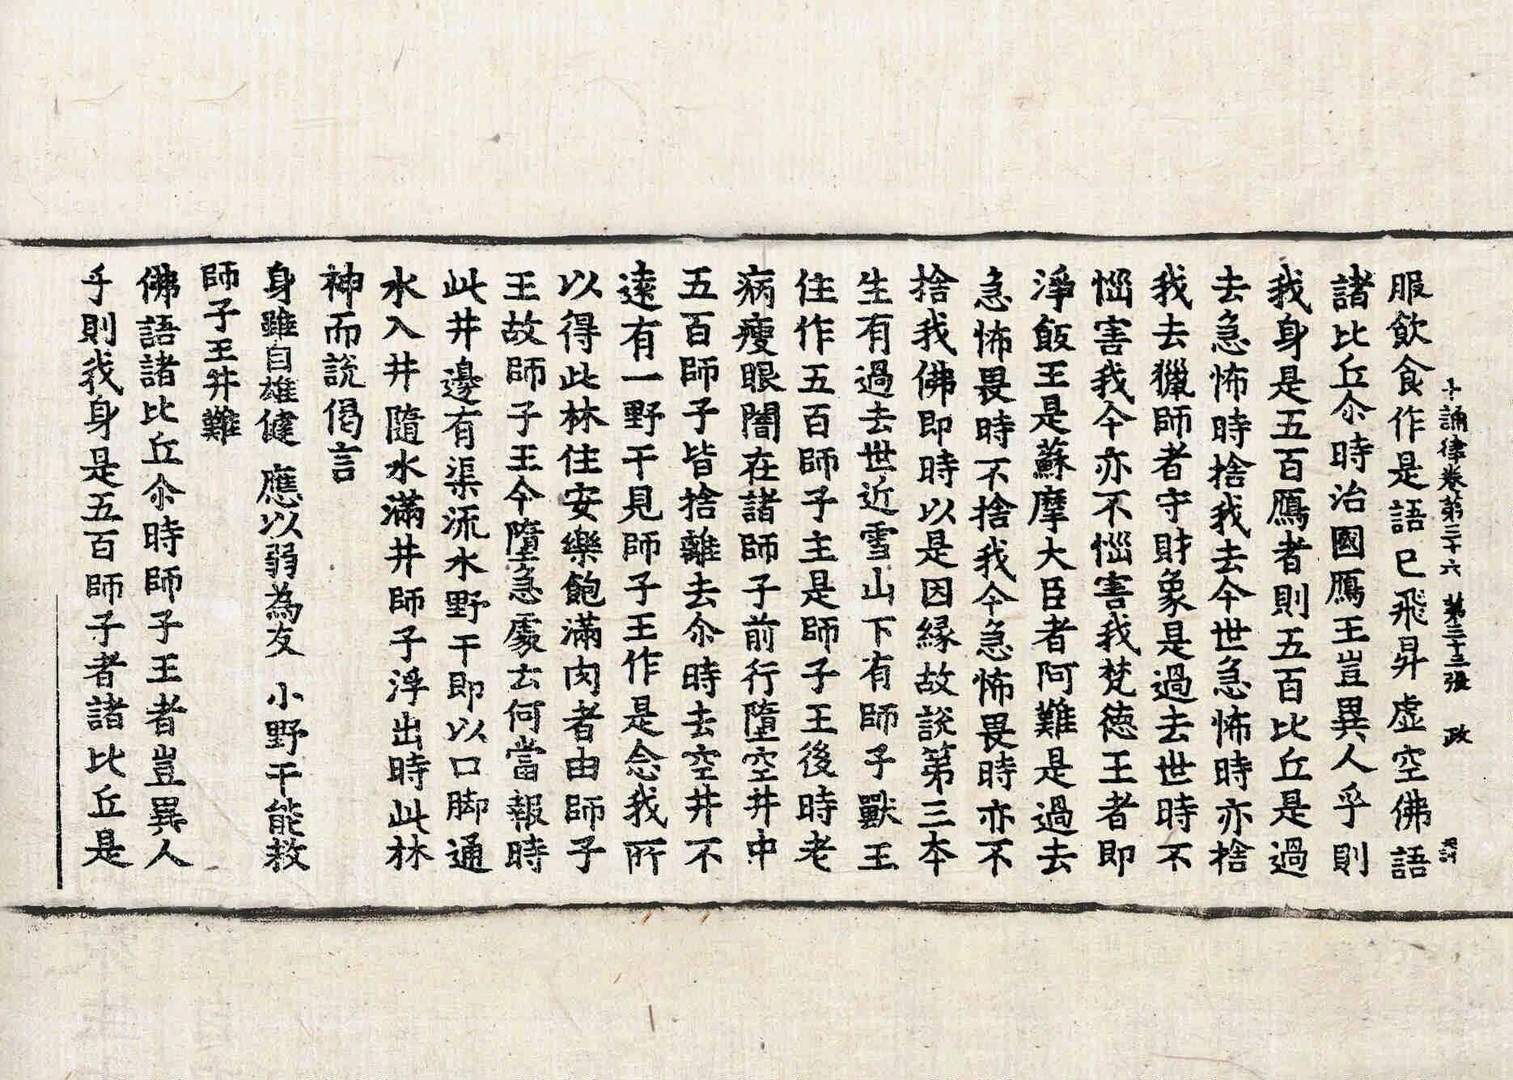 十誦律卷第三十六　第三十三張　政
服飲食作是語已飛昇虛空佛語
諸比丘尒時治國鴈王豈異人乎則
我身是五百鴈者則五百比丘是過
去急怖時捨我去今世急怖時亦捨
我去獵師者守財象是過去世時不
惱害我今亦不惱害我梵德王者即
淨飯王是蘇摩大臣者阿難是過去
急怖畏時不捨我今急怖畏時亦不
捨我佛即時以是因縁故説第三本
生有過去世近雪山下有師子獸王
住作五百師子主是師子王後時老
病瘦眼闇在諸師子前行墮空井中
五百師子皆捨離去尒時去空井不
遠有一野干見師子王作是念我所
以得此林住安樂飽滿肉者由師子
王故師子王今墮急處云何當報時
此井邊有渠流水野干即以口脚通
水入井隨水滿井師子浮出時此林
神而說偈言
身雖自雄健　應以弱為友　小野干能救
師子王井難
佛語諸比丘尒時師子王者豈異人
乎則我身是五百師子者諸比丘是